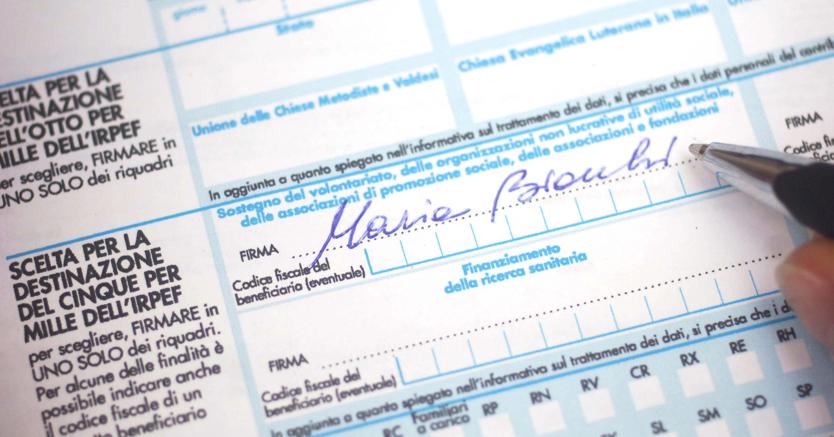 giorno
Stato
Unione delle Chiese Metodiste e Valdesi
Chiesa Evangelica Luterana in Italia
SCELTA PER LA
DESTINAZIONE
DELL'OTTO PER
MILLE DELL'IRPEF
per scegliere, FIRMARE in
UNO SOLO dei riquadri
In aggiunta a quanto spiegato nell'informativa sul trattamento dei dati, si precisa che i dati personali del
Sostegno del volontariato, delle organizzazioni non lucrative di utilità sociale,
delle associazioni di promozione sociale, delle associazioni e fondazioni
FIRMA Maria Bianchi
Codice fiscale del
beneficiario (eventuale)
FIRMA
SCELTA PER LA
DESTINAZIONE
DEL CINQUE PER
MILLE DELL'IRPEF
per scegliere, FIRMARE in
UNO SOLO dei riquadri.
Per alcune delle finalità è
possibile indicare anche
il codice fiscale di un
beneficiario
Finanziamento
della ricerca sanitaria
FIRMA
Codice fiscale del
beneficiario (eventuale)
In aggiunta a quanto spiegato nell'informativa sul trattamento dei dati, si precisa che i dati
RC Familiari a carico RP RN RV CR RX RE RH
SL SM SO SP